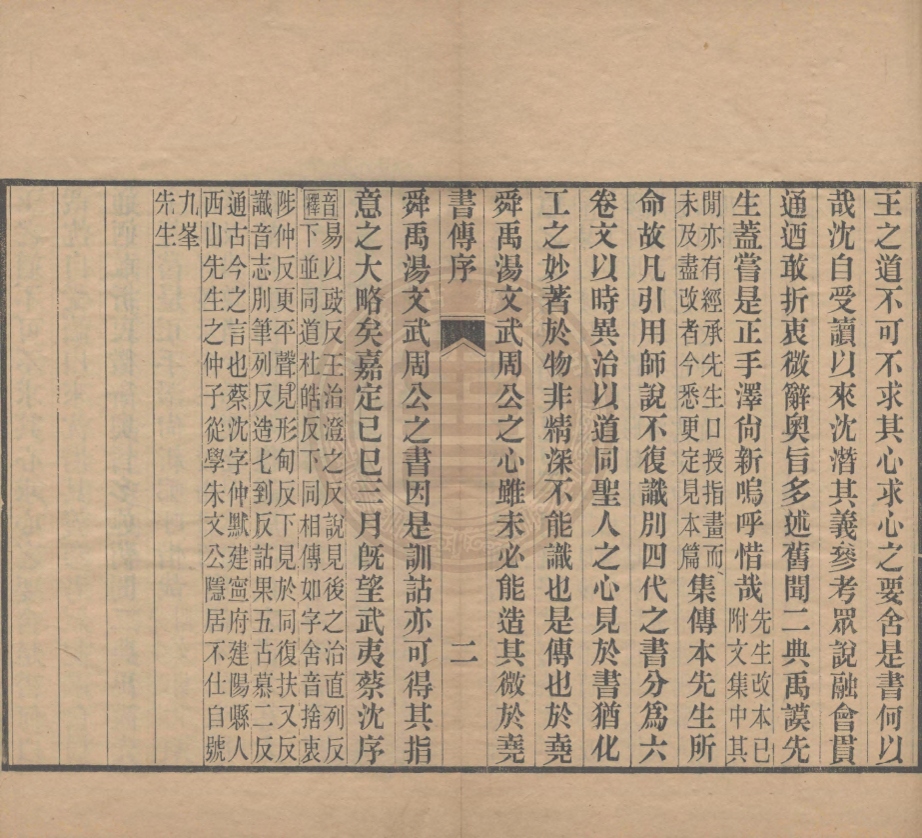 王之道不可不求其心求心之要舍是書何以
哉沈自受讀以來沈潛其義參考眾說融會貫
通迺敢折衷微辭奧旨多述舊聞二典禹謨先
生蓋嘗是正手澤尙新嗚呼惜哉先生改本已
附文集中其
閒亦有經承先生口授指畫而
未及盡改者今悉更定見本篇集傳本先生所
命故凡引用師說不復識別四代之書分爲六
卷文以時異治以道同聖人之心見於書猶化
工之妙著於物非精深不能識也是傳也於堯
舜禹湯文武周公之心雖未必能造其微於堯
書傳序 二
舜禹湯文武周公之書因是訓詁亦可得其指
意之大略矣嘉定己巳三月旣望武夷蔡沈序
音易以豉反王治澄之反說見後之治直列反
釋下並同道杜皓反下同相傳如字舍音捨衷
陟仲反更平聲見形甸反下見於同復扶又反
識音志別筆列反造七到反詁果五古慕二反
通古今之言也蔡沈字仲默建寧府建陽縣人
西山先生之仲子從學朱文公隱居不仕自號
九峯
先生